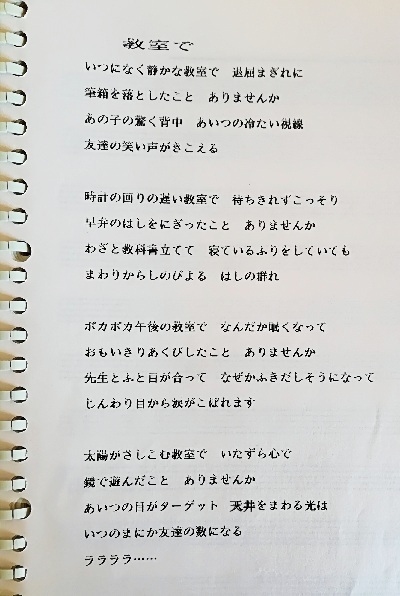 教室で
いつになく静かな教室で　退屈まぎれに
筆箱を落としたこと　ありませんか
あの子の驚く背中　あいつの冷たい視線
友達の笑い声がきこえる
時計の回りの遅い教室で　待ちきれずこっそり
早弁のはしをにぎったこと　ありませんか
わざと教科書立てて　寝ているふりをしていても
まわりからしのびよる　はしの群れ
ポカポカ午後の教室で　なんだか眠くなって
おもいきりあくびしたこと　ありませんか
先生とふと目が合って　なぜかふきだしそうになって
じんわり目から涙がこぼれます
太陽がさしこむ教室で　いたずら心で
鏡で遊んだこと　ありませんか
あいつの目がターゲット　天井をまわる光は
いつのまにか友達の数になる
ララララ……